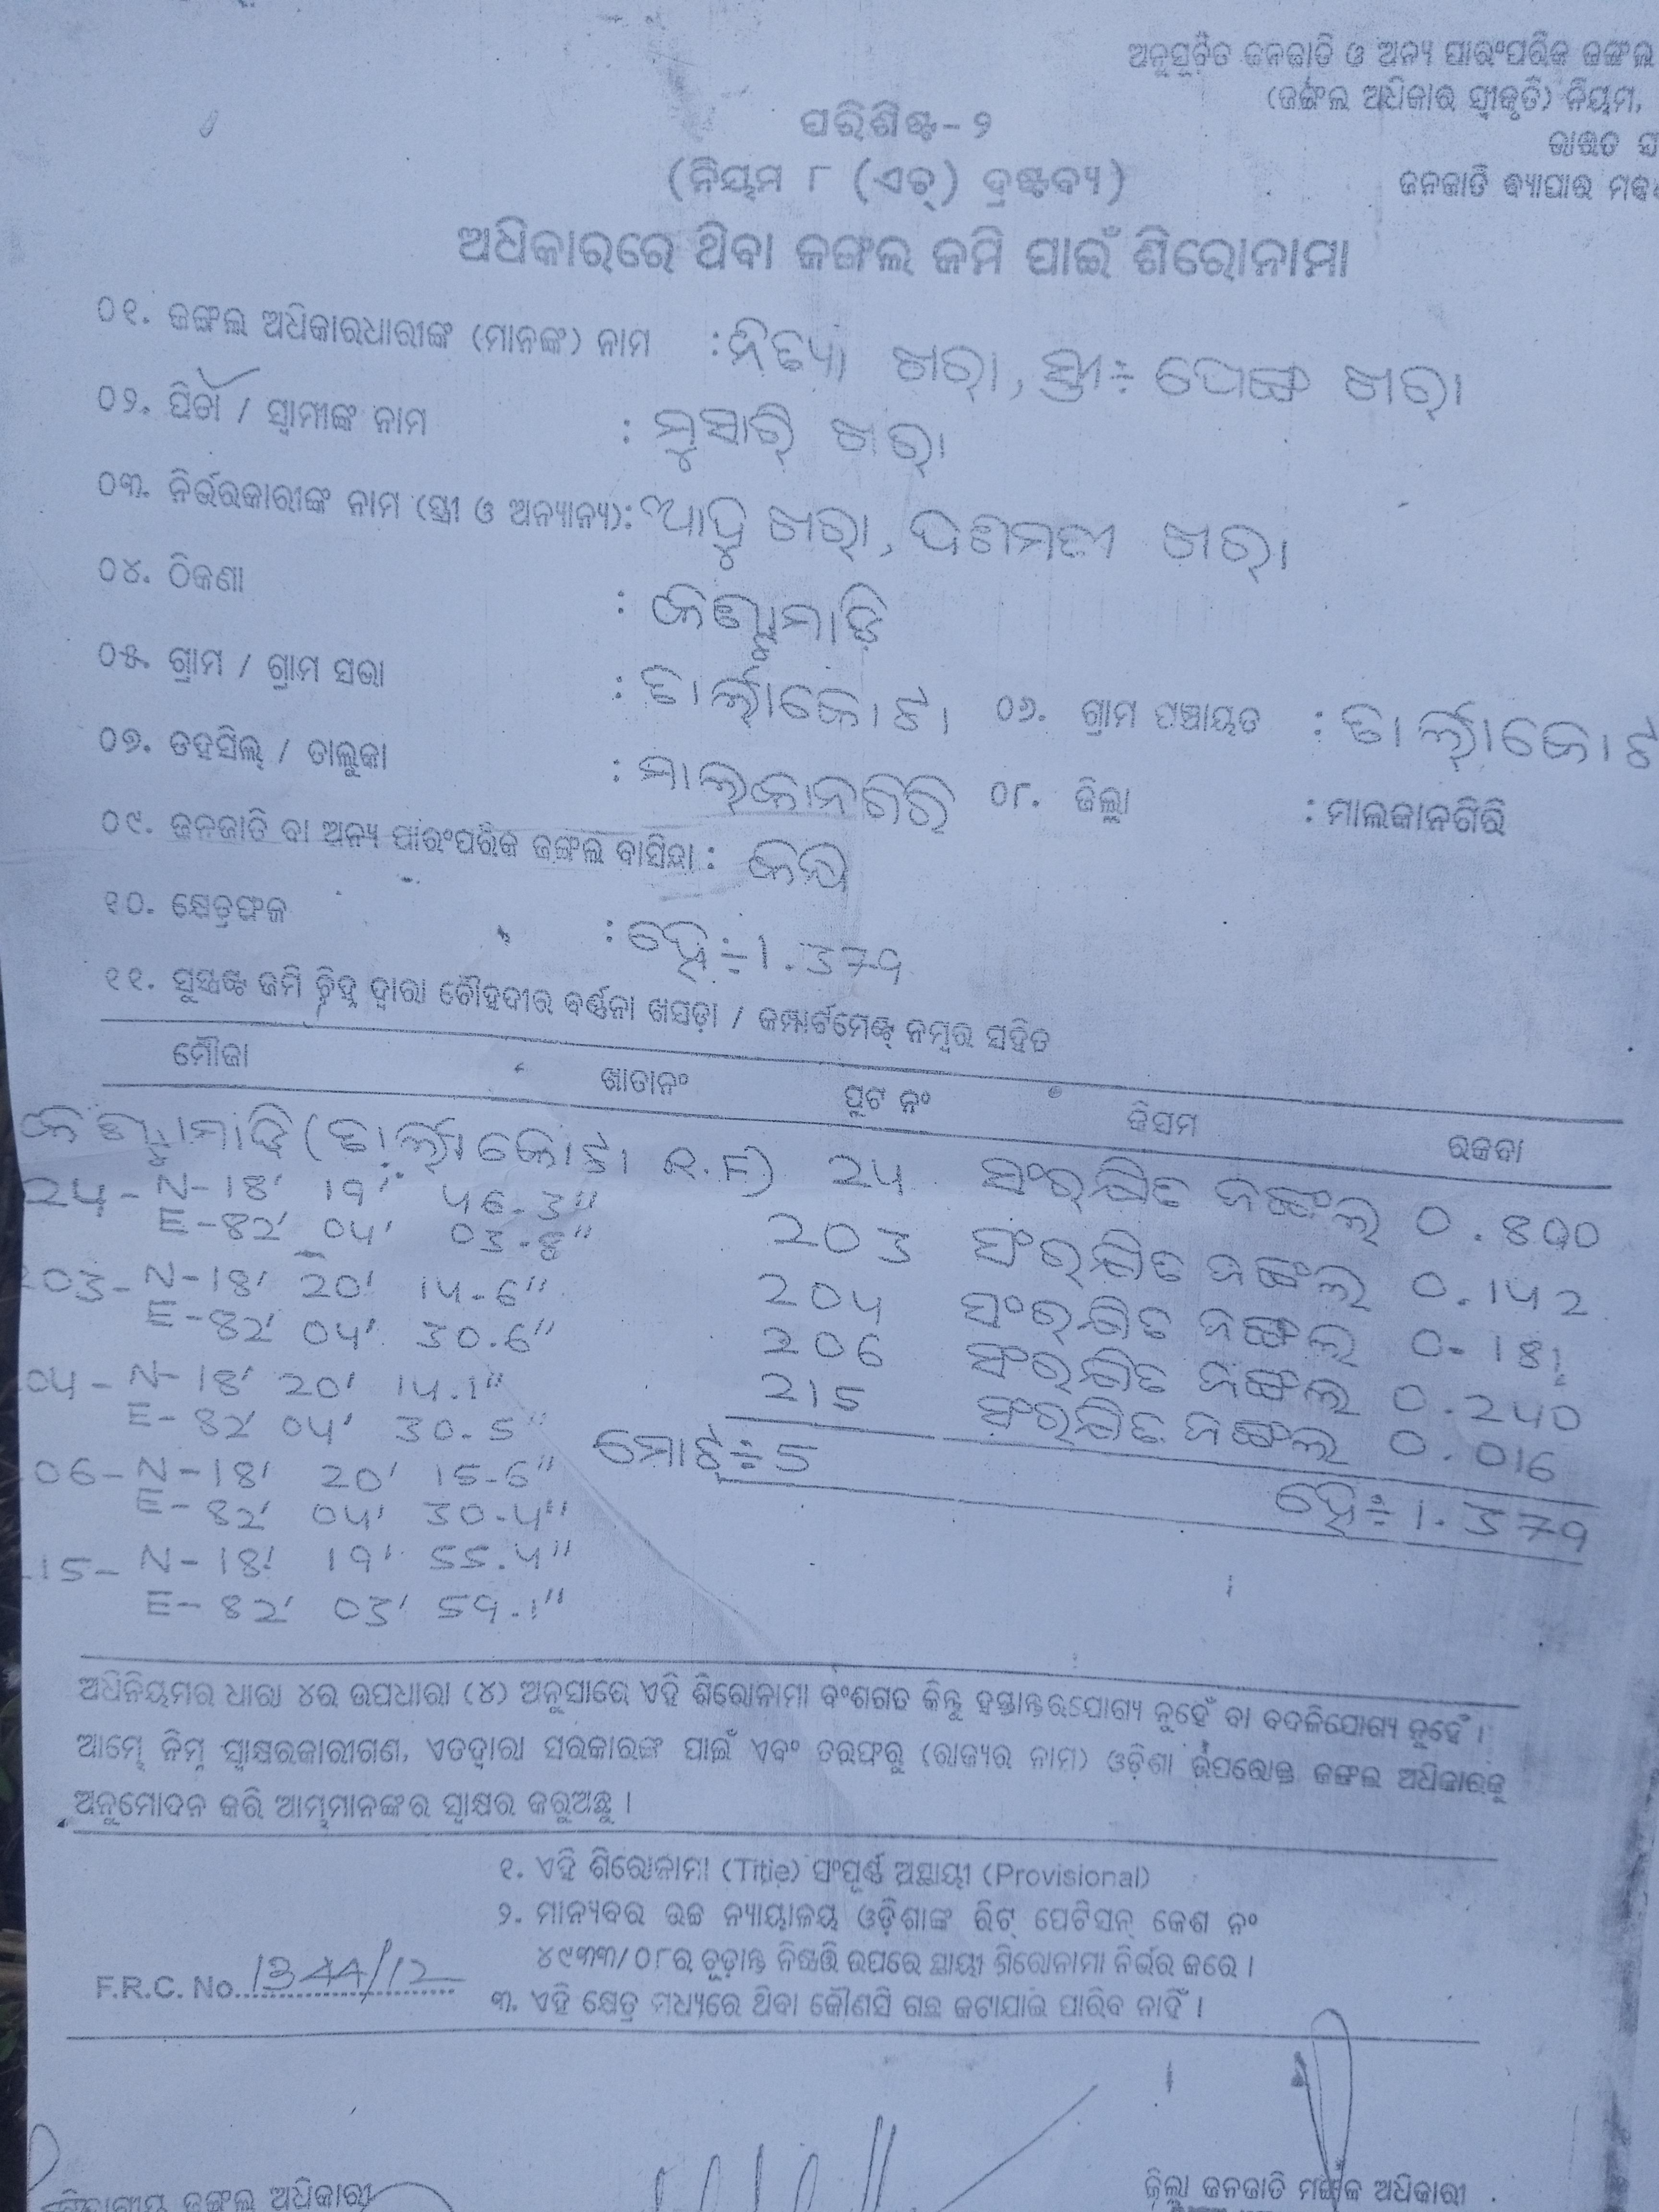 ଅନୁସୂଚିତ ଜନଜାତି ଓ ଅନ୍ୟ ପାରଂପରିକ ଜଙ୍ଗଲ
(ଜଙ୍ଗଲ ଅଧିକାର ସ୍ୱୀକୃତି) ନିୟମ,
ଭାରତ ସ
ଜନଜାତି ବ୍ୟାପାର ମନ୍ତ୍ର
ପରିଶିଷ୍ଟ-୨
(ନିୟମ ୮ (ଏଚ୍) ଦ୍ରଷ୍ଟବ୍ୟ)
ଅଧିକାରରେ ଥିବା ଜଙ୍ଗଲ ଜମି ପାଇଁ ଶିରୋନାମା
୦୧. ଜଙ୍ଗଲ ଅଧିକାରଧାରୀଙ୍କ (ମାନଙ୍କ) ନାମ : ନିତ୍ୟା ଖରା, ସ୍ତ୍ରୀ÷ ଖରା
୦୨. ପିତା / ସ୍ୱାମୀଙ୍କ ନାମ : ମୁସାରି ଖରା
୦୩. ନିର୍ଭରକାରୀଙ୍କ ନାମ (ସ୍ତ୍ରୀ ଓ ଅନ୍ୟାନ୍ୟ): ଖରା, ଖରା
୦୪. ଠିକଣା :
୦୫. ଗ୍ରାମ / ଗ୍ରାମ ସଭା : ଟାର୍ଲାକୋଟା ୦୬. ଗ୍ରାମ ପଞ୍ଚାୟତ : ଟାର୍ଲାକୋଟ
୦୭. ତହସିଲ୍ / ତାଲୁକା : ମାଲ୍‌କାନଗିରି ୦୮. ଜିଲ୍ଲା : ମାଲକାନଗିରି
୦୯. ଜନଜାତି ବା ଅନ୍ୟ ପାରଂପରିକ ଜଙ୍ଗଲ ବାସିନ୍ଦା : କନ୍ଧ
୧୦. କ୍ଷେତ୍ରଫଳ : ହେ÷1.379
୧୧. ସୁସ୍ପଷ୍ଟ ଜମି ଚିହ୍ନ ଦ୍ୱାରା ଚୌହଦୀର ବର୍ଣ୍ଣନା ଖସଡ଼ା / କମ୍ପାର୍ଟମେଣ୍ଟ୍ ନମ୍ବର ସହିତ
ମୌଜା ଖାତାନଂ ପ୍ଲଟ ନଂ କିସମ ରକବା
(ଟାର୍ଲାକୋଟା R.F) 24 ସଂରକ୍ଷିତ ଜଙ୍ଗଲ 0.800
24- N-18' 19' 46.3"
E-82' 04' 03.8" 203 ସଂରକ୍ଷିତ ଜଙ୍ଗଲ 0.142
203- N-18' 20' 14.6" 204 ସଂରକ୍ଷିତ ଜଙ୍ଗଲ 0.181
E-82' 04' 30.6" 206 ସଂରକ୍ଷିତ ଜଙ୍ଗଲ 0.240
04- N-18' 20' 14.1" 215 ସଂରକ୍ଷିତ ଜଙ୍ଗଲ 0.016
E-82' 04' 30.5" ମୋଟ÷5 ହେ÷1.379
06- N-18' 20' 15.6"
E-82' 04' 30.4"
15- N-18' 19' 55.4"
E-82' 03' 59.1"
ଅଧିନିୟମର ଧାରା ୪ର ଉପଧାରା (୪) ଅନୁସାରେ ଏହି ଶିରୋନାମା ବଂଶଗତ କିନ୍ତୁ ହସ୍ତାନ୍ତରଯୋଗ୍ୟ ନୁହେଁ ବା ବଦଳିଯୋଗ୍ୟ ନୁହେଁ ।
ଆମ୍ଭେ ନିମ୍ନ ସ୍ୱାକ୍ଷରକାରୀଗଣ, ଏତଦ୍ୱାରା ସରକାରଙ୍କ ପାଇଁ ଏବଂ ତରଫରୁ (ରାଜ୍ୟର ନାମ) ଓଡ଼ିଶା ଉପରୋକ୍ତ ଜଙ୍ଗଲ ଅଧିକାରକୁ
ଅନୁମୋଦନ କରି ଆମ୍ଭମାନଙ୍କର ସ୍ୱାକ୍ଷର କରୁଅଛୁ ।
୧. ଏହି ଶିରୋନାମା (Title) ସଂପୂର୍ଣ୍ଣ ଅସ୍ଥାୟୀ (Provisional)
୨. ମାନ୍ୟବର ଉଚ୍ଚ ନ୍ୟାୟାଳୟ ଓଡ଼ିଶାଙ୍କ ରିଟ୍ ପେଟିସନ୍ କେଶ ନଂ
୪୯୩୩/୦୮ର ଚୂଡ଼ାନ୍ତ ନିଷ୍ପତ୍ତି ଉପରେ ସ୍ଥାୟୀ ଶିରୋନାମା ନିର୍ଭର କରେ ।
F.R.C. No. 1344/12
୩. ଏହି କ୍ଷେତ୍ର ମଧ୍ୟରେ ଥିବା କୌଣସି ଗଛ କଟାଯାଇ ପାରିବ ନାହିଁ ।
ଜଙ୍ଗଲ ଅଧିକାରୀ ଜିଲ୍ଲା ଜନଜାତି ମଙ୍ଗଳ ଅଧିକାରୀ